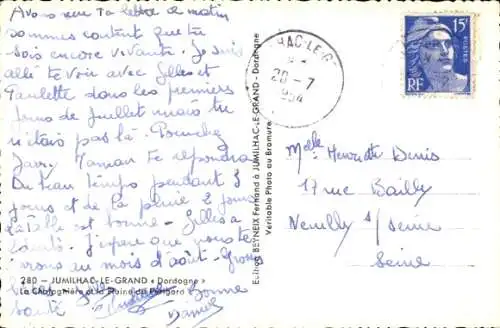 Avons reçu ta lettre ce matin
sommes content que tu
sois encore vivante. Je suis
allé te voir avec Gilles et
Paulette dans les premiers
jours de Juillet mais tu
n'étais pas là.
Maman te répondra
Du beau temps pendant 3
jours et de la pluie 2 jours
la bête est bonne. Gilles a
santé. J'espère que nous te
verrons au mois d'août. Grosses
280 - JUMILHAC-LE-GRAND « Dordogne »
La Châtaigneraie et la Plaine du Périgord
Bonne
santé
Daniel
Editions BEYNEIX Fernand à JUMILHAC-LE-GRAND - Dordogne
Véritable Photo au Bromure
HAC-LE-G
20 - 7
954
15F
POSTES
RF
Melle Henriette Denis
17 rue Bailly
Neuilly s/ Seine
Seine